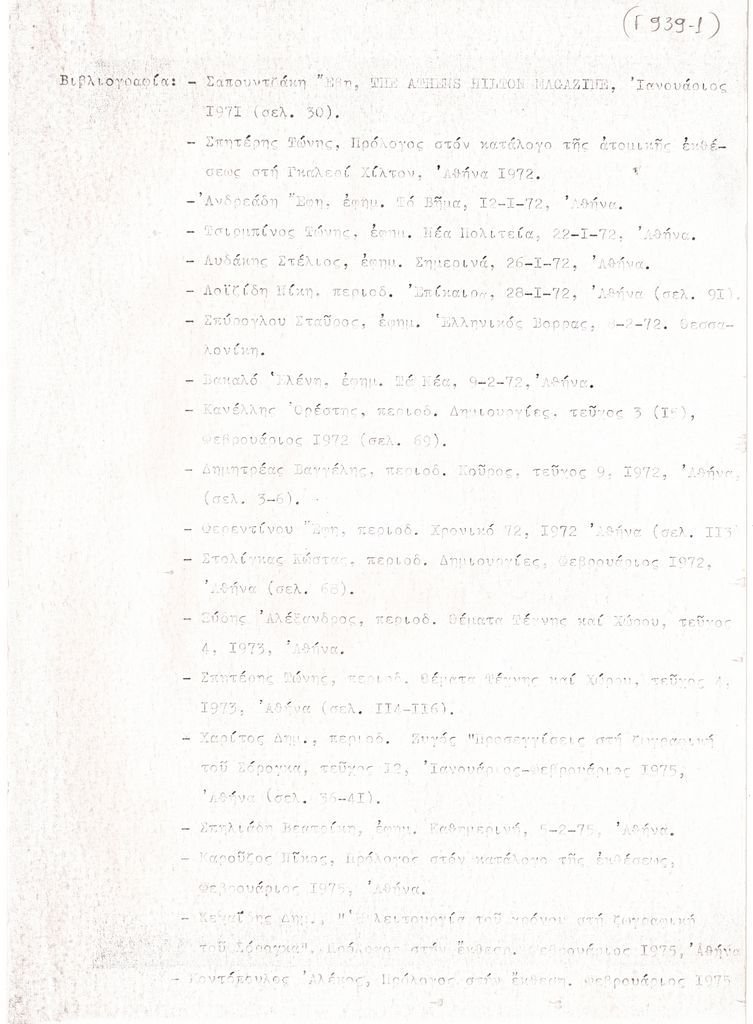 (Γ 939-1)
Βιβλιογραφία: - Σαπουντζάκη Ἔφη, THE ATHENS HILTON MAGAZINE, Ἰανουάριος
I97I (σελ. 30).
- Σπητέρης Τώνης, Πρόλογος στόν κατάλογο τῆς ἀτομικῆς ἐκθέ-
σεως στή Γκαλερί Χίλτον, Ἀθήνα I972.
-Ἀνδρεάδη Ἔφη, ἐφημ. Τό Βῆμα, I2-I-72, Ἀθήνα.
- Τσιρμπίνος Τώνης, ἐφημ. Νέα Πολιτεία, 22-I-72, Ἀθήνα.
- Λυδάκης Στέλιος, ἐφημ. Σημερινά, 26-I-72, Ἀθήνα.
- Λοϊζίδη Νίκη, περιοδ. Ἐπίκαιρα, 28-I-72, Ἀθήνα (σελ. 9I).
- Σπύρογλου Σταῦρος, ἐφημ. Ἑλληνικός Βορρας, -2-72. Θεσσα-
λονίκη.
- Βακαλό Ἑλένη, ἐφημ. Τά Νέα, 9-2-72, Ἀθήνα.
- Κανέλλης Ὀρέστης, περιοδ. Δημιουργίες, τεῦχος 3 (I5),
Φεβρουάριος I972 (σελ. 69).
- Δημητρέας Βαγγέλης, περιοδ. Κοῦρος, τεῦχος 9, I972, Ἀθήνα,
(σελ. 3-6).
- Φερεντίνου Ἔφη, περιοδ. Χρονικό 72, I972 Ἀθήνα (σελ. II3
- Στολίγκας Κώστας, περιοδ. Δημιουργίες, Φεβρουάριος I972,
Ἀθήνα (σελ. 68).
- Ξύδης Ἀλέξανδρος, περιοδ. Θέματα Τέχνης καί Χώρου, τεῦχος
4, I973, Ἀθήνα.
- Σπητέρης Τώνης, περιοδ. Θέματα Τέχνης καί Χώρου, τεῦχος 4,
I973, Ἀθήνα (σελ. II4-II6).
- Χαρίτος Δημ., περιοδ. Ζυγός "Προσεγγίσεις στή ζωγραφική
τοῦ Σόρογκα, τεῦχος I2, Ἰανουάριος-Φεβρουάριος I975,
Ἀθήνα (σελ. 36-4I).
- Σπηλιάδη Βεατρίκη, ἐφημ. Καθημερινή, 5-2-75, Ἀθήνα.
- Καροῦζος Νῖκος, Πρόλογος στόν κατάλογο τῆς ἐκθέσεως,
Φεβρουάριος I975, Ἀθήνα.
- Δημ., "Ἡ λειτουργία τοῦ χρόνου στή ζωγραφική
τοῦ Σόρογκα". Πρόλογος στήν ἔκθεση. Φεβρουάριος I975, Ἀθήνα
- Κοντόπουλος Ἀλέκος, Πρόλογος στήν ἔκθεση. Φεβρουάριος I975